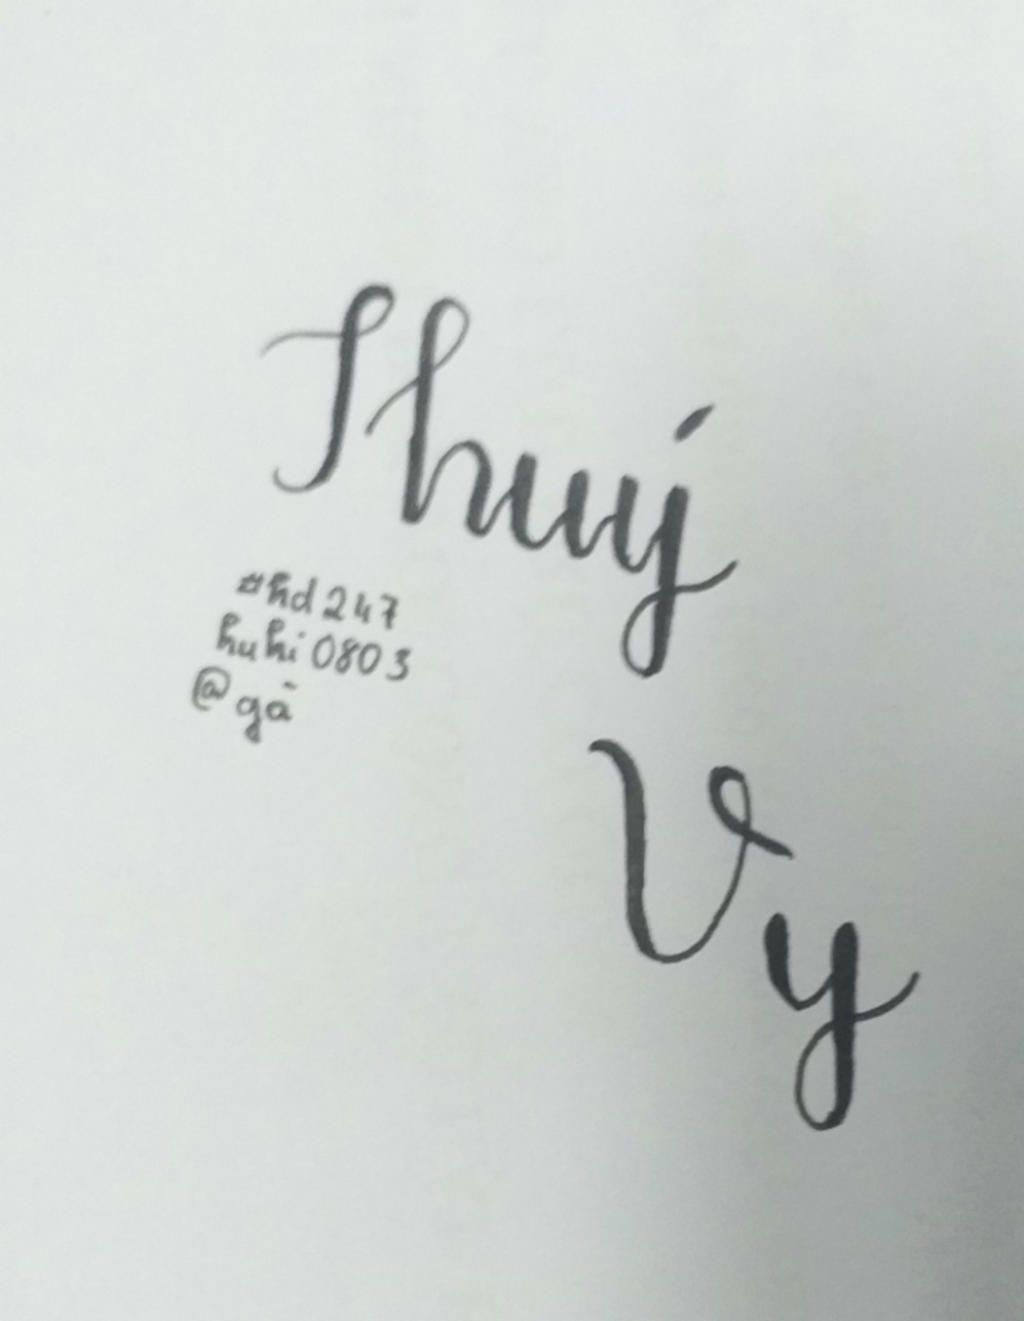 Thuý
#hd247
huhi0803
@gà
Vy